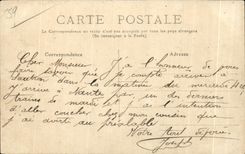 39
CARTE POSTALE
La Correspondance au recto n'est pas acceptée par tous les pays étrangers
(Se renseigner à la Poste)
Correspondance
Adresse
Cher Monsieur J'ai l'honneur de vous
faire savoir que je compte arriver à
dans la matinée du mercredi
J'arrive à Nantes par un des derniers
trains de mardi et j'ai l'intention
d'aller coucher chez mon cousin que
j'ai averti au préalable
Votre tout dévoué
Joseph